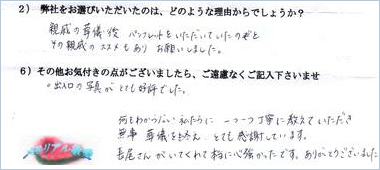 2) 弊社をお選びいただいたのは、どのような理由からでしょうか?
親戚の葬儀後 パンフレットをいただいていたのと
その親戚のススメもあり お願いしました。
6) その他お気付きの点がございましたら、ご遠慮なくご記入下さいませ
○出入口の写真がとても好評でした。
何もわからない私たちに 一つ一つ丁寧に教えていただき
無事 葬儀を終え、とても感謝しています。
長尾さんがいてくれて本当に心強かったです。ありがとうございました
リアル